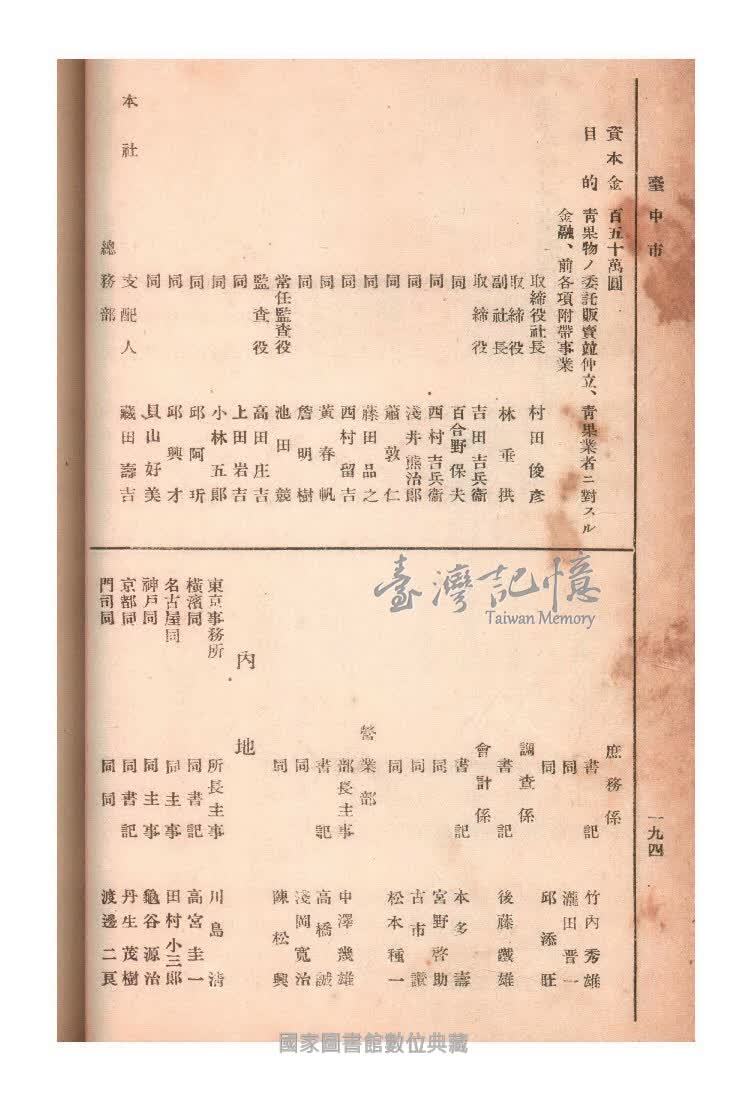 臺中市
一九四
資本金 百五十萬圓
目的 靑果物ノ委託販賣竝仲立、靑果業者ニ對スル
金融、前各項附帶事業
取締役社長 村田俊彥
取締役副社長 林垂拱
取締役 吉田吉兵衞
同 百合野保夫
同 西村吉兵衞
同 淺井熊治郎
同 蕭敦仁
同 藤田品之
同 西村留吉
同 黃春帆
同 詹明樹
常任監査役 池田競
監査役 高田庄吉
同 上田岩吉
同 小林五郎
同 邱阿
同 邱興才
同 貝山好美
本社
支配人 藏田壽吉
總務部
庶務係
書記 竹內秀雄
同 瀧田晋一
同 邱添旺
調查係
書記 後藤鐵雄
會計係
書記 本多壽
同 宮野啓助
同 古市讚
同 松本種一
營業部
部長主事 中澤幾雄
書記 高橋誠
同 淺岡寬治
同 陳松興
內地
東京事務所 所長主事 川島淸
橫濱同 同書記 高宮圭一
名古屋同 同主事 田村小三郎
神戶同 同主事 龜谷源治
京都同 同書記 丹生茂樹
門司同 同同 渡邊二良
臺灣記憶
Taiwan Memory
國家圖書館數位典藏